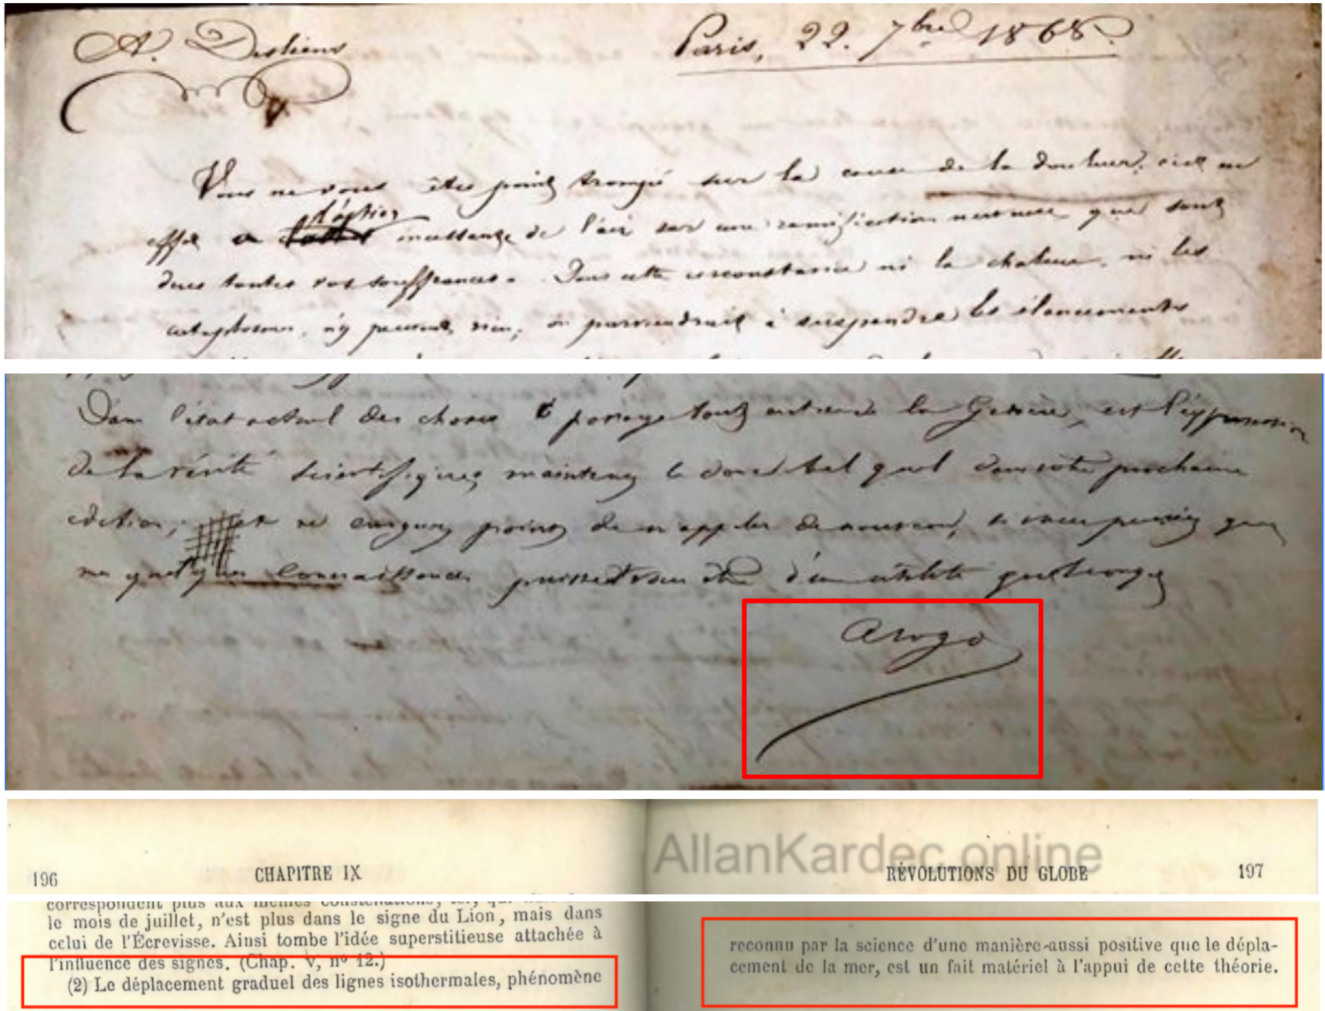 A. Desliens
Paris, 22. 7bre 1868.
Vous ne vous êtes point trompé sur la cause de la douleur, c'est un
effet de l'action incessante de l'air sur une ramification nerveuse que sont
dues toutes vos souffrances. Dans cette circonstance ni la chaleur, ni les
cataplasmes, n'y peuvent rien; on parviendrait à suspendre les élancements
Dans l'état actuel des choses le passage tout entier de la Genèse, est l'expression
de la vérité scientifique; maintenez le donc tel quel dans votre prochaine
édition; et ne craignez point de m'appeler de nouveau, si vous pensez que
mes quelques connaissances puissent vous être d'une utilité quelconque
Arago
AllanKardec.online
196 CHAPITRE IX
RÉVOLUTIONS DU GLOBE 197
correspondent plus aux mêmes constellations,
le mois de juillet, n'est plus dans le signe du Lion, mais dans
celui de l'Écrevisse. Ainsi tombe l'idée superstitieuse attachée à
l'influence des signes. (Chap. V, nº 12.)
(2) Le déplacement graduel des lignes isothermales, phénomène
reconnu par la science d'une manière aussi positive que le dépla-
cement de la mer, est un fait matériel à l'appui de cette théorie.